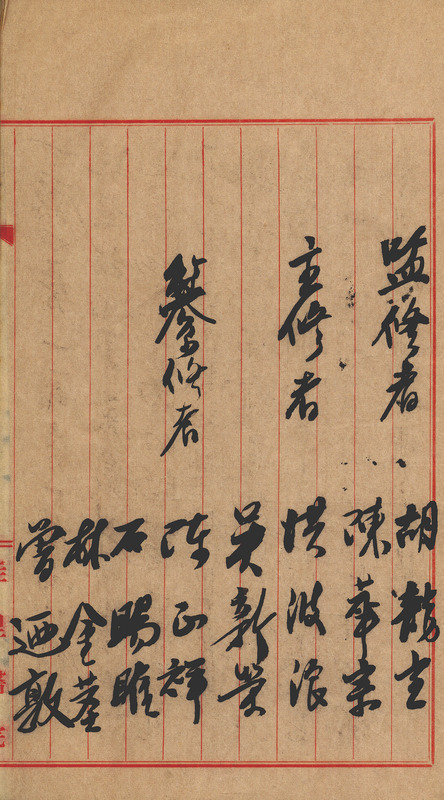 監修者
胡龍宝
陳華宗
主修者
洪波浪
吳新榮
纂修者
陳正祥
石暘睢
林金莖
曾迺敦